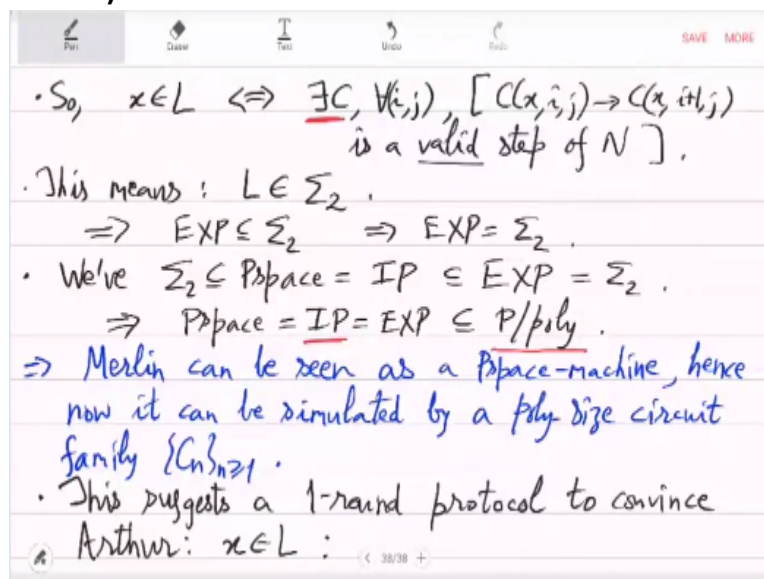 Pen Eraser Text Undo Redo SAVE MORE
· So, x∈L <=> ∃C, ∀(i,j), [C(x,i,j)→C(x,i+1,j)
is a valid step of N].
· This means: L ∈ Σ₂.
=> EXP ⊆ Σ₂ => EXP = Σ₂.
· We've Σ₂ ⊆ Pspace = IP ⊆ EXP = Σ₂.
=> Pspace = IP = EXP ⊆ P/poly.
=> Merlin can be seen as a Pspace-machine, hence
now it can be simulated by a poly-size circuit
family {Cn}n≥1.
· This suggests a 1-round protocol to convince
Arthur: x∈L :
< 38/38 +